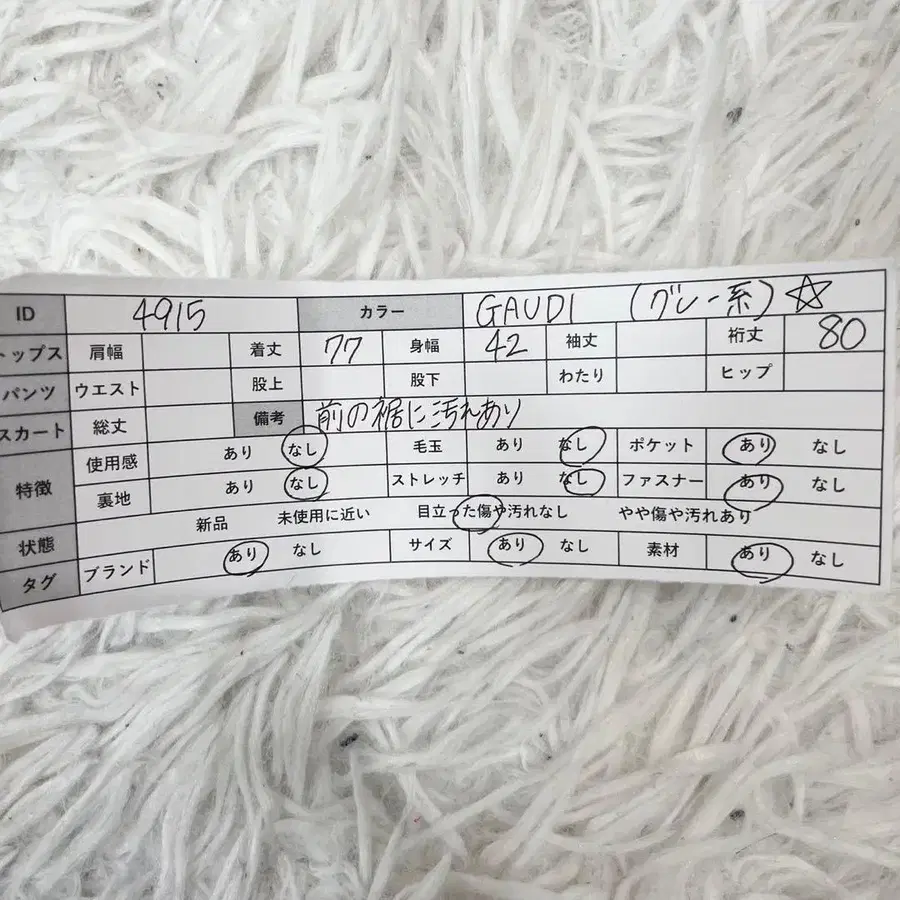 ID 4915 カラー GAUDI (グレー系) ☆
トップス 肩幅 着丈 77 身幅 42 袖丈 裄丈 80
パンツ ウエスト 股上 股下 わたり ヒップ
スカート 総丈 備考 前の裾に汚れあり
特徴 使用感 あり なし 毛玉 あり なし ポケット あり なし
裏地 あり なし ストレッチ あり なし ファスナー あり なし
状態 新品 未使用に近い 目立った傷や汚れなし やや傷や汚れあり
タグ ブランド あり なし サイズ あり なし 素材 あり なし